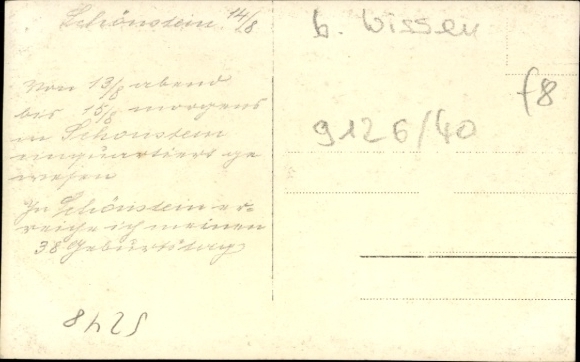 Schönstein 14/8
b. Wissen
f8
Von 13/8 abend
bis 15/8 morgens
in Schönstein
einquartiert ge
wesen
9126/40
In Schönstein er-
reiche ich meinen
38 Geburtstag
8425